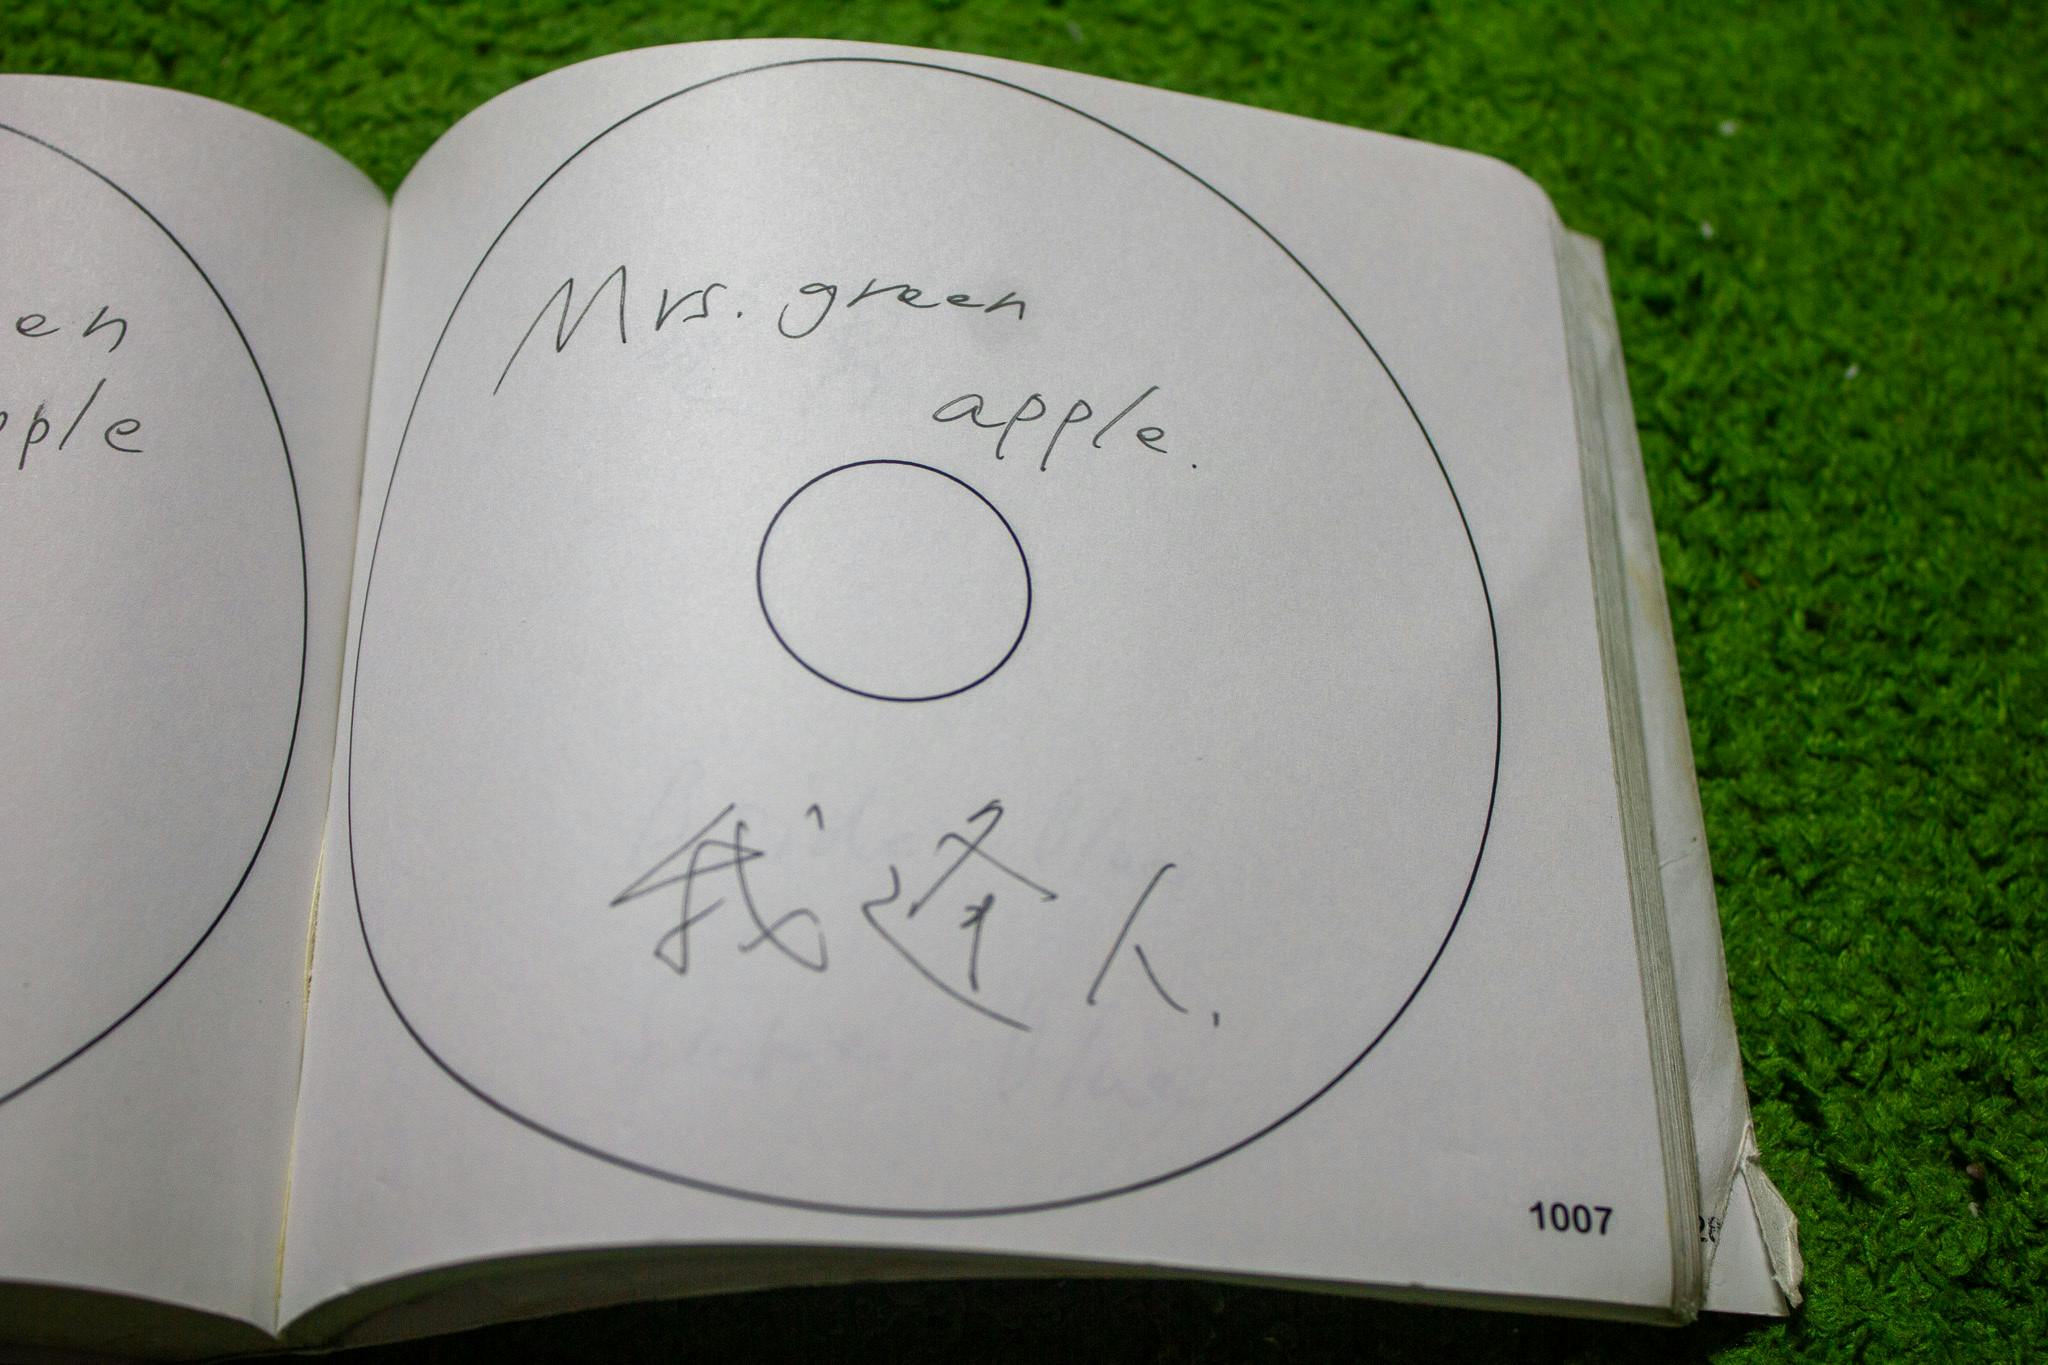 en
pple
Mrs. green
apple.
我逢人.
1007